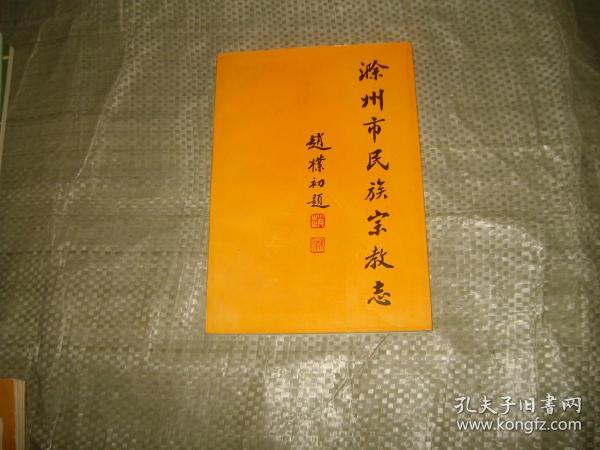 滁州市民族宗教志
趙樸初題
孔夫子旧書网
www.kongfz.com